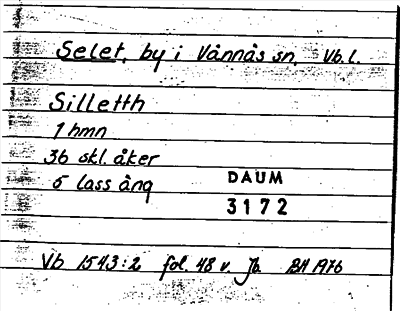 Selet, by i Vännäs sn. Vb.l.
Silletth
1 hmn
36 skl. åker
5 lass äng
DAUM
3172
Vb 1543:2 fol. 48 v. Jb. BH 1976